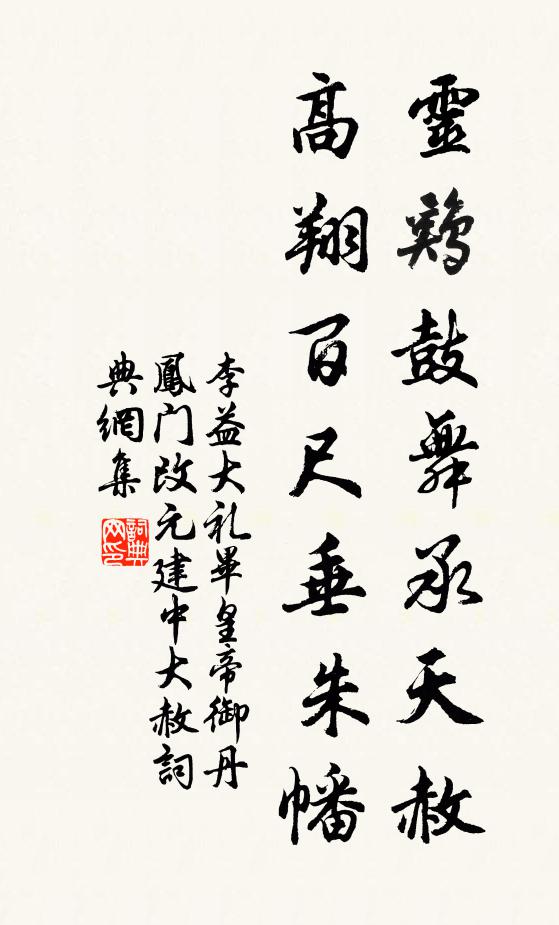 靈鷄鼓舞承天赦
高翔百尺垂朱幡
李益大礼畢皇帝御丹
鳳门改元建中大赦
詞典網集
詞典网印